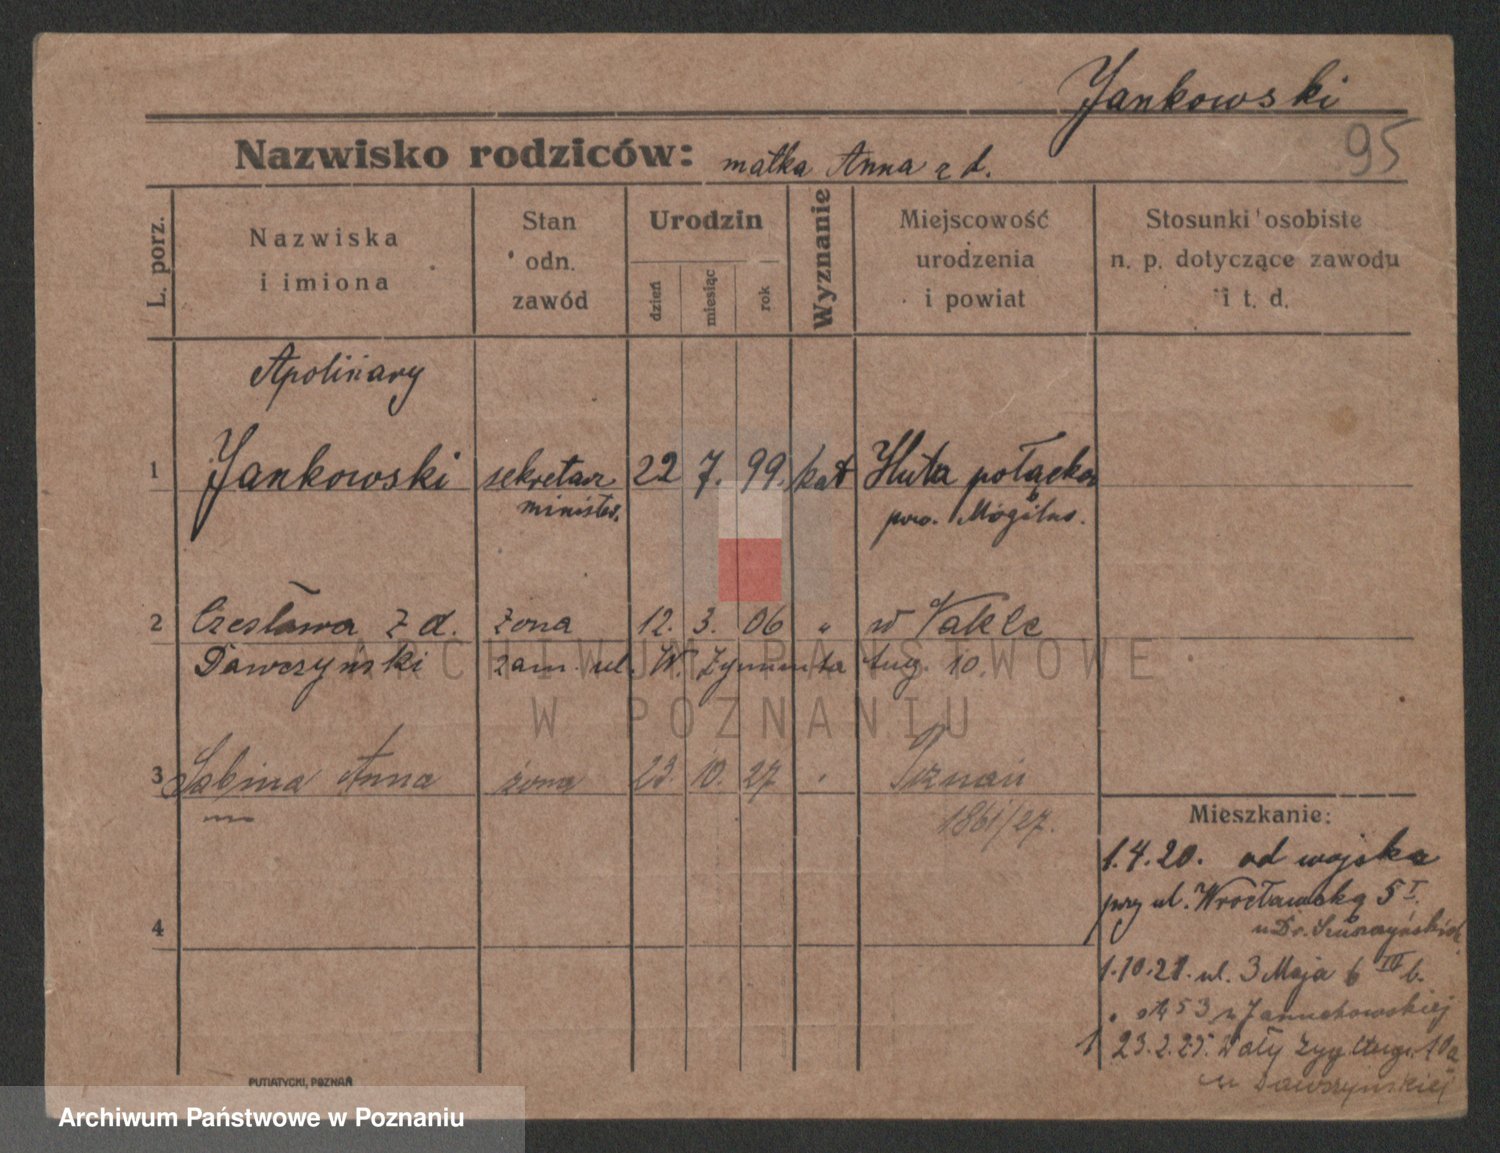 Jankowski
95
Nazwisko rodziców: matka Anna z d.
L. porz.
Nazwiska
i imiona
Stan
odn.
zawód
Urodzin
dzień
miesiąc
rok
Wyznanie
Miejscowość
urodzenia
i powiat
Stosunki osobiste
n. p. dotyczące zawodu
i t. d.
Apolinary
1 Jankowski sekretarz 22 7. 99. kat Huta
minister. pow. Mogilno.
2 Czesława z d. żona 12. 3. 06 " w Nakle
Dawczyński zam. ul. W. Zygmunta Aug. 10.
3 Sabina Anna żona 23. 10. 27 " Poznań
1861/27.
4
Mieszkanie:
1.4.20. od wojska
przy ul. Wrocławska 5 I.
u Dr.
1.10.21. ul. 3 Maja 6 III b.
u Januchowskiej
23.2.25. Wały Zyg. Aug. 10a
u Dawczyńskiej
PUTIATYCKI, POZNAŃ
ARCHIWUM PAŃSTWOWE
W POZNANIU
Archiwum Państwowe w Poznaniu